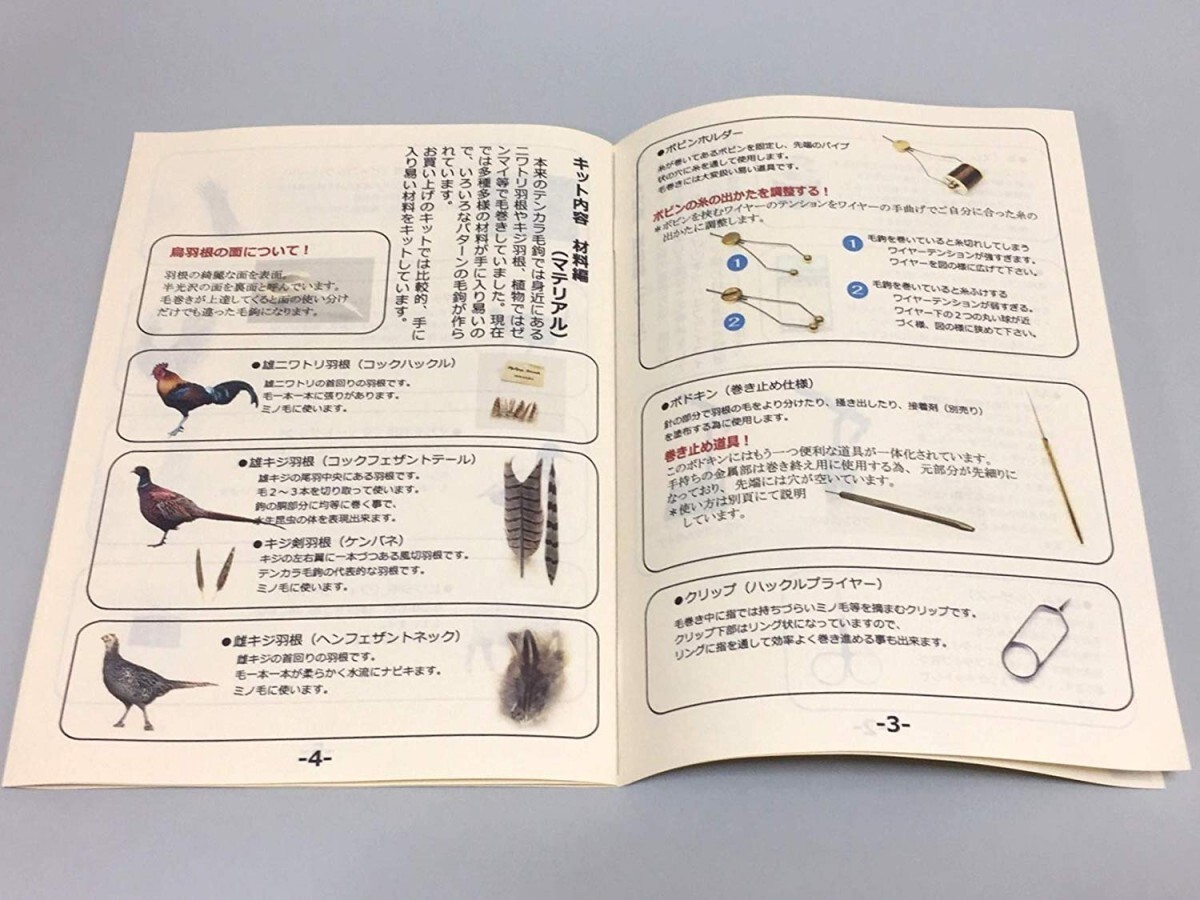 ●ボビンホルダー
糸が巻いてあるボビンを固定し、先端のパイプ
状の穴に糸を通して使用します。
毛巻きには大変扱い易い道具です。
ボビンの糸の出かたを調整する！
＊ボビンを挟むワイヤーのテンションをワイヤーの手曲げでご自分に合った糸の
出かたに調整します。
1
2
1 毛鉤を巻いていると糸切れしてしまう
ワイヤーテンションが強すぎます。
ワイヤーを図の様に広げて下さい。
2 毛鉤を巻いていると糸ふけする
ワイヤーテンションが弱すぎる。
ワイヤー下の２つの丸い球が近
づく様、図の様に狭めて下さい。
●ボドキン（巻き止め仕様）
針の部分で羽根の毛をより分けたり、掻き出したり、接着剤（別売り）
を塗布する為に使用します。
巻き止め道具！
このボドキンにはもう一つ便利な道具が一体化されています。
手持ちの金属部は巻き終え用に使用する為、元部分が先細りに
なっており、先端には穴が空いています。
＊使い方は別頁にて説明
しています。
●クリップ（ハックルプライヤー）
毛巻き中に指では持ちづらいミノ毛等を摘まむクリップです。
クリップ下部はリング状になっていますので、
リングに指を通して効率よく巻き進める事も出来ます。
-3-
キット内容 材料編
（マテリアル）
本来のテンカラ毛鉤では身近にある
ニワトリ羽根やキジ羽根、植物ではゼ
ンマイ等で毛巻きしていました。現在
では多種多様の材料が手に入り易いの
で、いろいろなパターンの毛鉤が作ら
れています。
お買い上げのキットでは比較的、手に
入り易い材料をキットしています。
鳥羽根の面について！
羽根の綺麗な面を表面。
半光沢の面を裏面と呼んでいます。
毛巻きが上達してくると面の使い分け
だけでも違った毛鉤になります。
●雄ニワトリ羽根（コックハックル）
雄ニワトリの首回りの羽根です。
毛一本一本に張りがあります。
ミノ毛に使います。
●雄キジ羽根（コックフェザントテール）
雄キジの尾羽中央にある羽根です。
毛２～３本を切り取って使います。
鉤の胴部分に均等に巻く事で、
水生昆虫の体を表現出来ます。
●キジ剣羽根（ケンバネ）
キジの左右翼に一本づつある風切羽根です。
テンカラ毛鉤の代表的な羽根です。
ミノ毛に使います。
●雌キジ羽根（ヘンフェザントネック）
雌キジの首回りの羽根です。
毛一本一本が柔らかく水流にナビキます。
ミノ毛に使います。
-4-